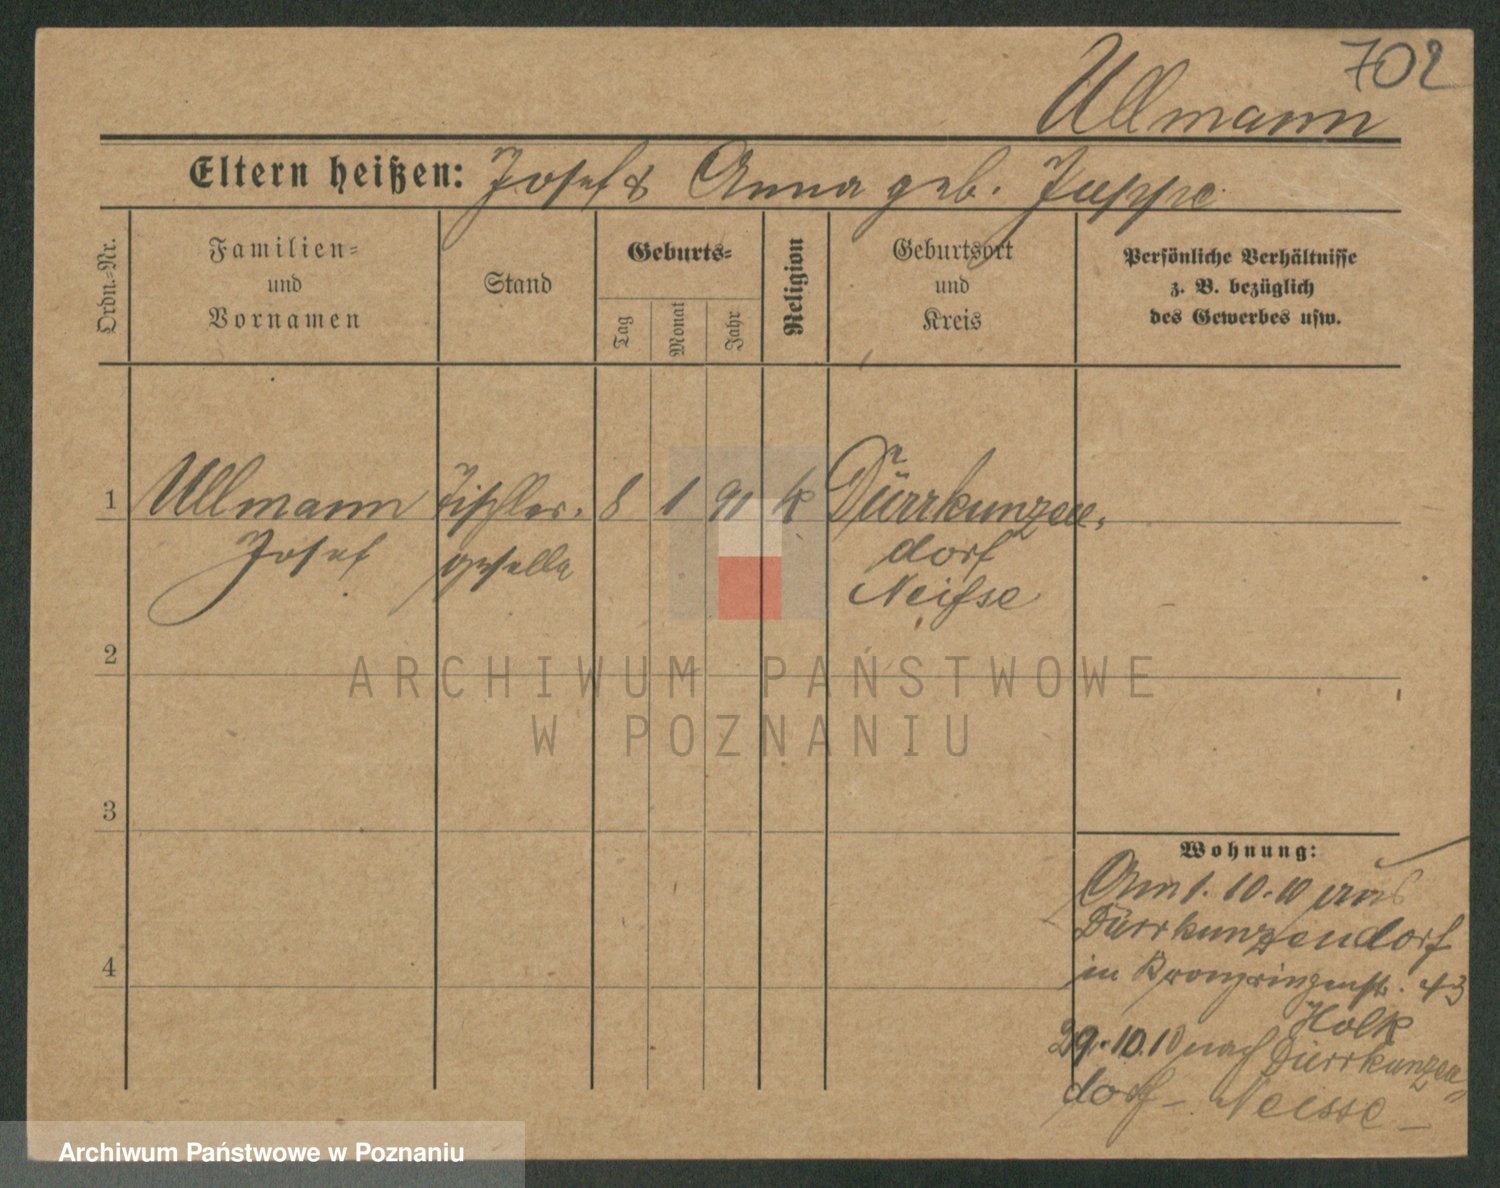 702
Ullmann
Eltern heißen: Josef & Anna geb. Juppe
Ordn.-Nr.
Familien-
und
Vornamen
Stand
Geburts-
Tag
Monat
Jahr
Religion
Geburtsort
und
Kreis
Persönliche Verhältnisse
z. B. bezüglich
des Gewerbes usw.
1 Ullmann Tischler- 8 1 91 k Dürrkunzen-
Josef geselle dorf
Neisse
2
3
4
Wohnung:
Am 1. 10. 10 aus
Dürrkunzendorf
in Kronprinzenstr. 43
Holk
29.10.10 nach Dürrkunzen
dorf - Neisse -
ARCHIWUM PAŃSTWOWE
W POZNANIU
Archiwum Państwowe w Poznaniu